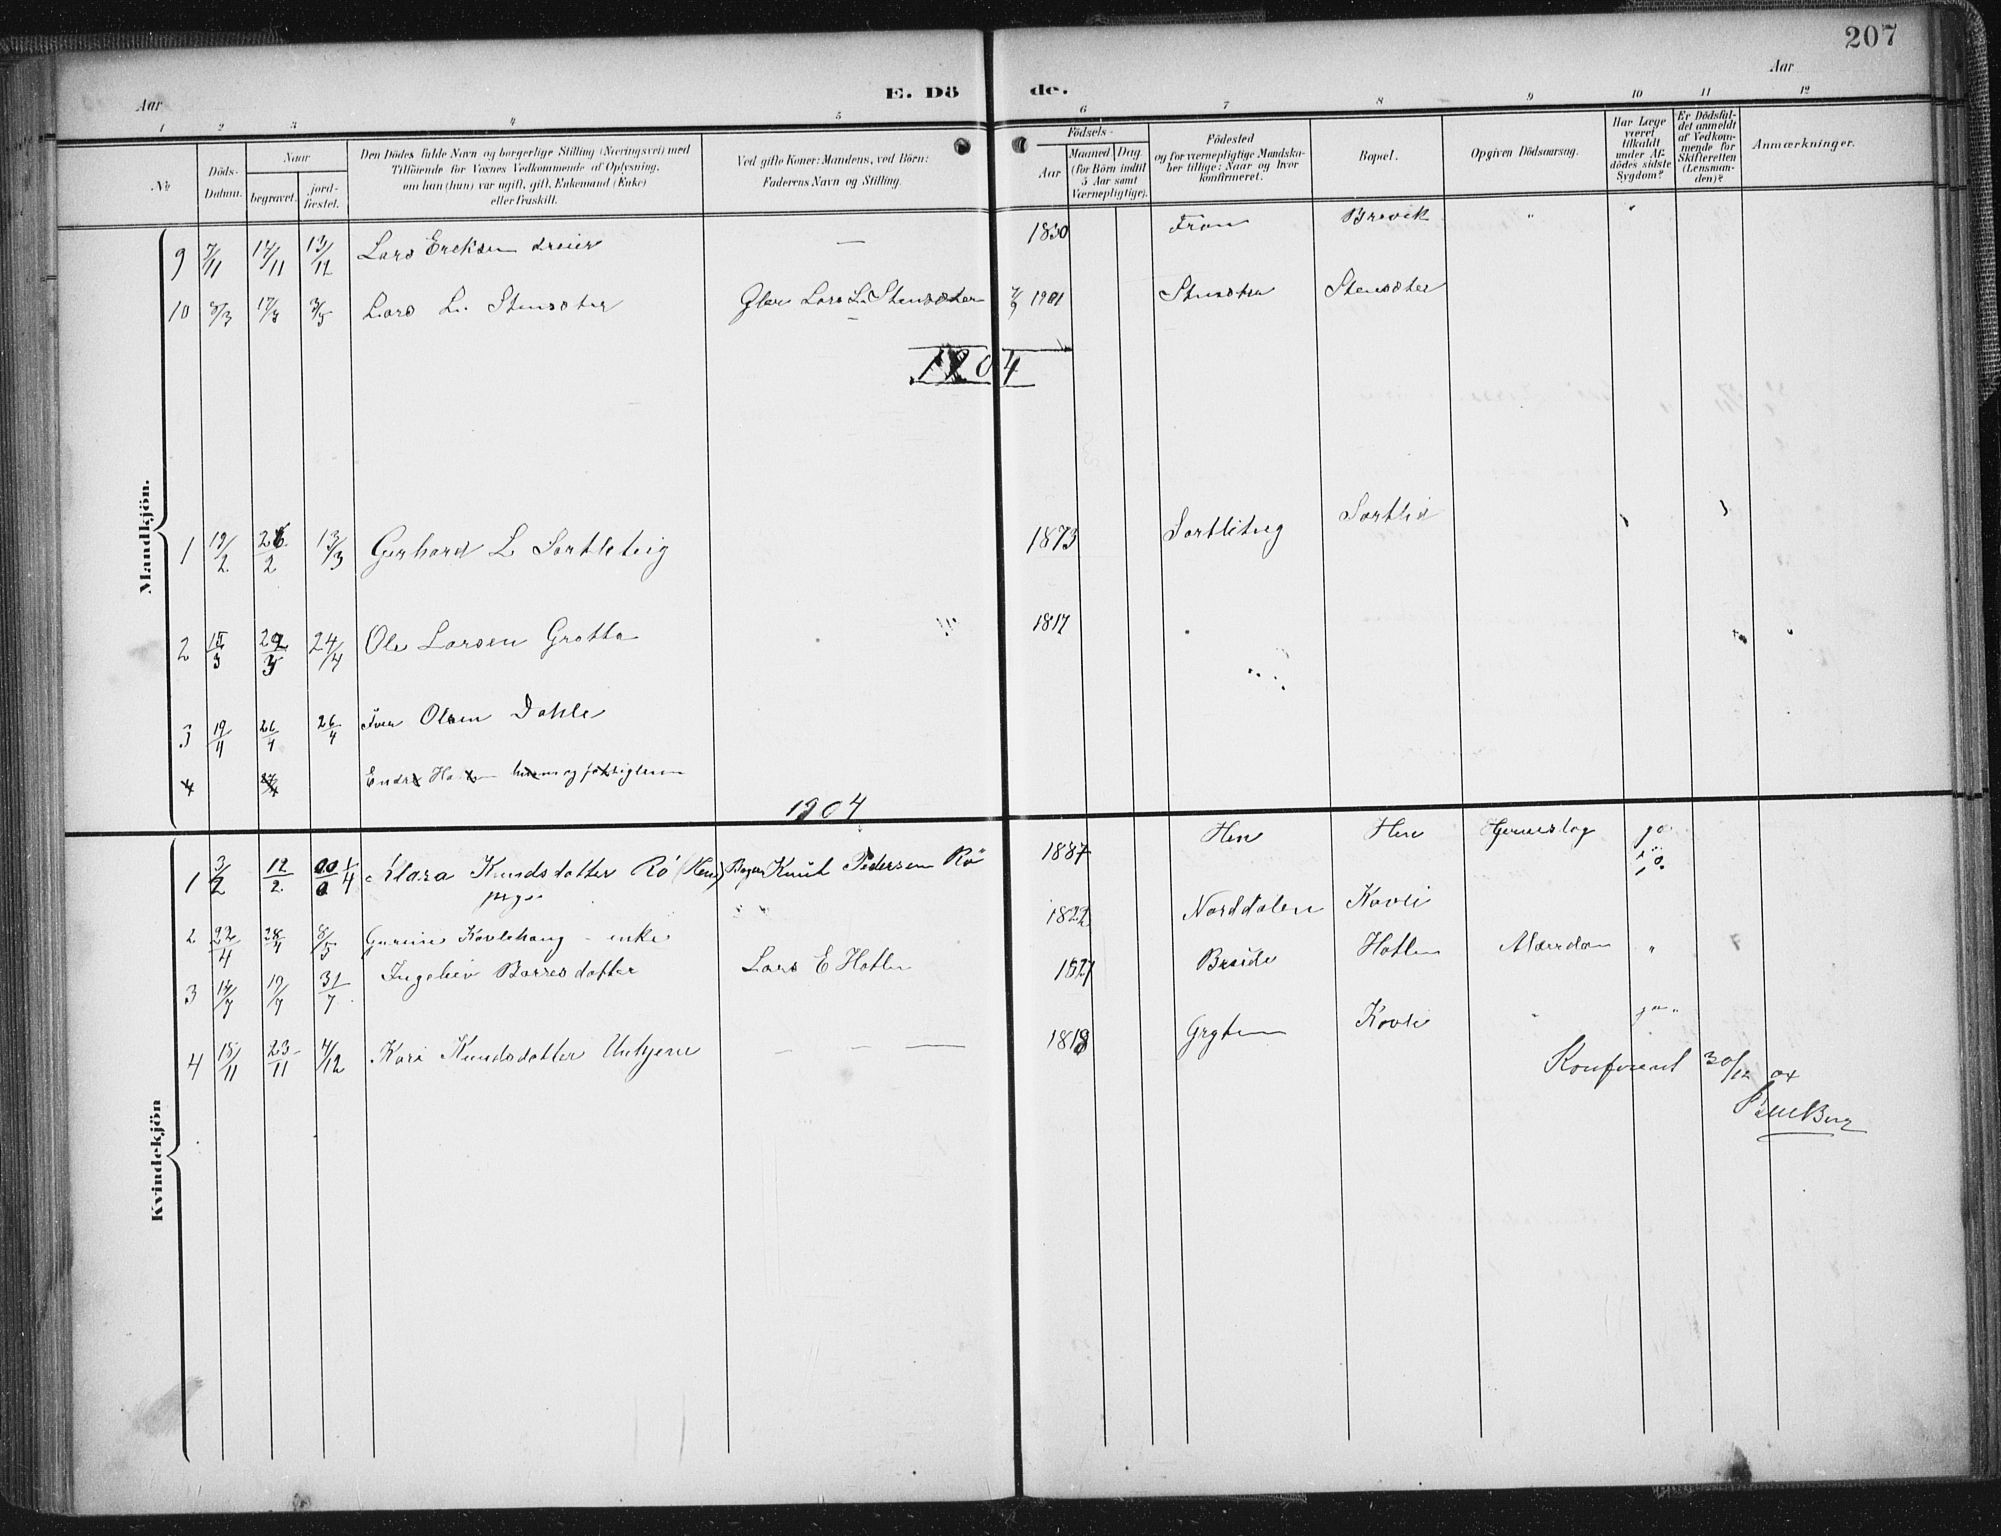 207
Aar
E. Dö de.
Aar
1 2 3 4 5 6 7 8 9 10 11 12
No
Döds-Datum.
Naar
begravet.
jord-fæstet.
Den Dödes fulde Navn og borgerlige Stilling (Næringsvei) med
Tilföiende for Voxnes Vedkommende af Oplysning,
om han (hun) var ugift, gift, Enkemand (Enke)
eller fraskilt.
Ved gifte Koner: Mandens, ved Börn:
Faderens Navn og Stilling.
Födsels-
Aar
Maaned Dag
(for Börn indtil
5 Aar samt
Værnepligtige).
Födested
og for værnepligtige Mandska-
ber tillige: Naar og hvor
konfirmeret.
Bopæl.
Opgiven Dödsaarsag.
Har Læge
været
tilkaldt
under Af-
dödes sidste
Sygdom?
Er Dödsfal-
det anmeldt
af Vedkom-
mende for
Skifteretten
(Lensman-
den)?
Anmærkninger.
Mandkjön.
9 7/11 14/11 13/12 Lars Ereksen dreier — 1830 Fron Brevik " "
10 3/3 17/3 3/5 Lars L. Stensæter Lars L. Stensæter 7/9 1901 Stensæter
1904
1 19/2 26/2 13/3 Gerhard L Sortleteig 1873 Sortliteig Sortlid
2 3 24/4 Ole Larsen Grotta 1817
3 19/4 26/4 26/4 Iver Olsen Dahle
4
1904
Kvindekjön
1 3/2 12/2 1/4 Klara Knudsdatter Rö (Hen) pige Knut Pedersen Rö 1887 Hen Hen ja
2 22/4 28/4 8/5 Gurine Kovlehaug - enke 1822 Norddalen Kovli
3 14/7 19/7 31/7 Ingebev Barresdatter Lars E Hatlen 1827 Hatlen Alderdom "
4 18/11 23/11 4/12 Kari Knudsdatter — — — 1818 Kovli " ja
Konfereret 30/12 04